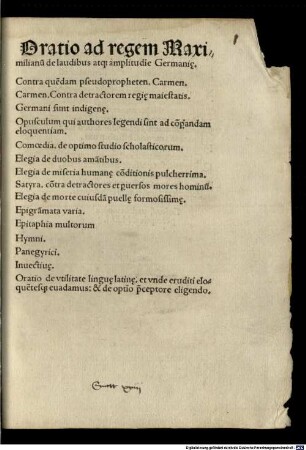 Oratio ad regem Maxi⸗
milianū de laudibus atqȝ amplitudie Germanię.
Contra quēdam pseudopropheten. Carmen.
Carmen. Contra detractorem regię maiestatis.
Germani sunt indigenę.
Opusculum qui authores legendi sint ad cōparandam
eloquentiam.
Comœdia. de optimo studio scholasticorum.
Elegia de duobus amātibus.
Elegia de miseria humanę cōditionis pulcherrima.
Satyra. cōtra detractores et puersos mores hominū.
Elegia de morte cuiusdā puellę formosissimę.
Epigrāmata varia.
Epitaphia multorum
Hymni.
Panegyrici.
Inuectiuę.
Oratio de vtilitate linguę latinę. et vnde eruditi elo⸗
quētesqȝ euadamus: & de optio pceptore eligendo.